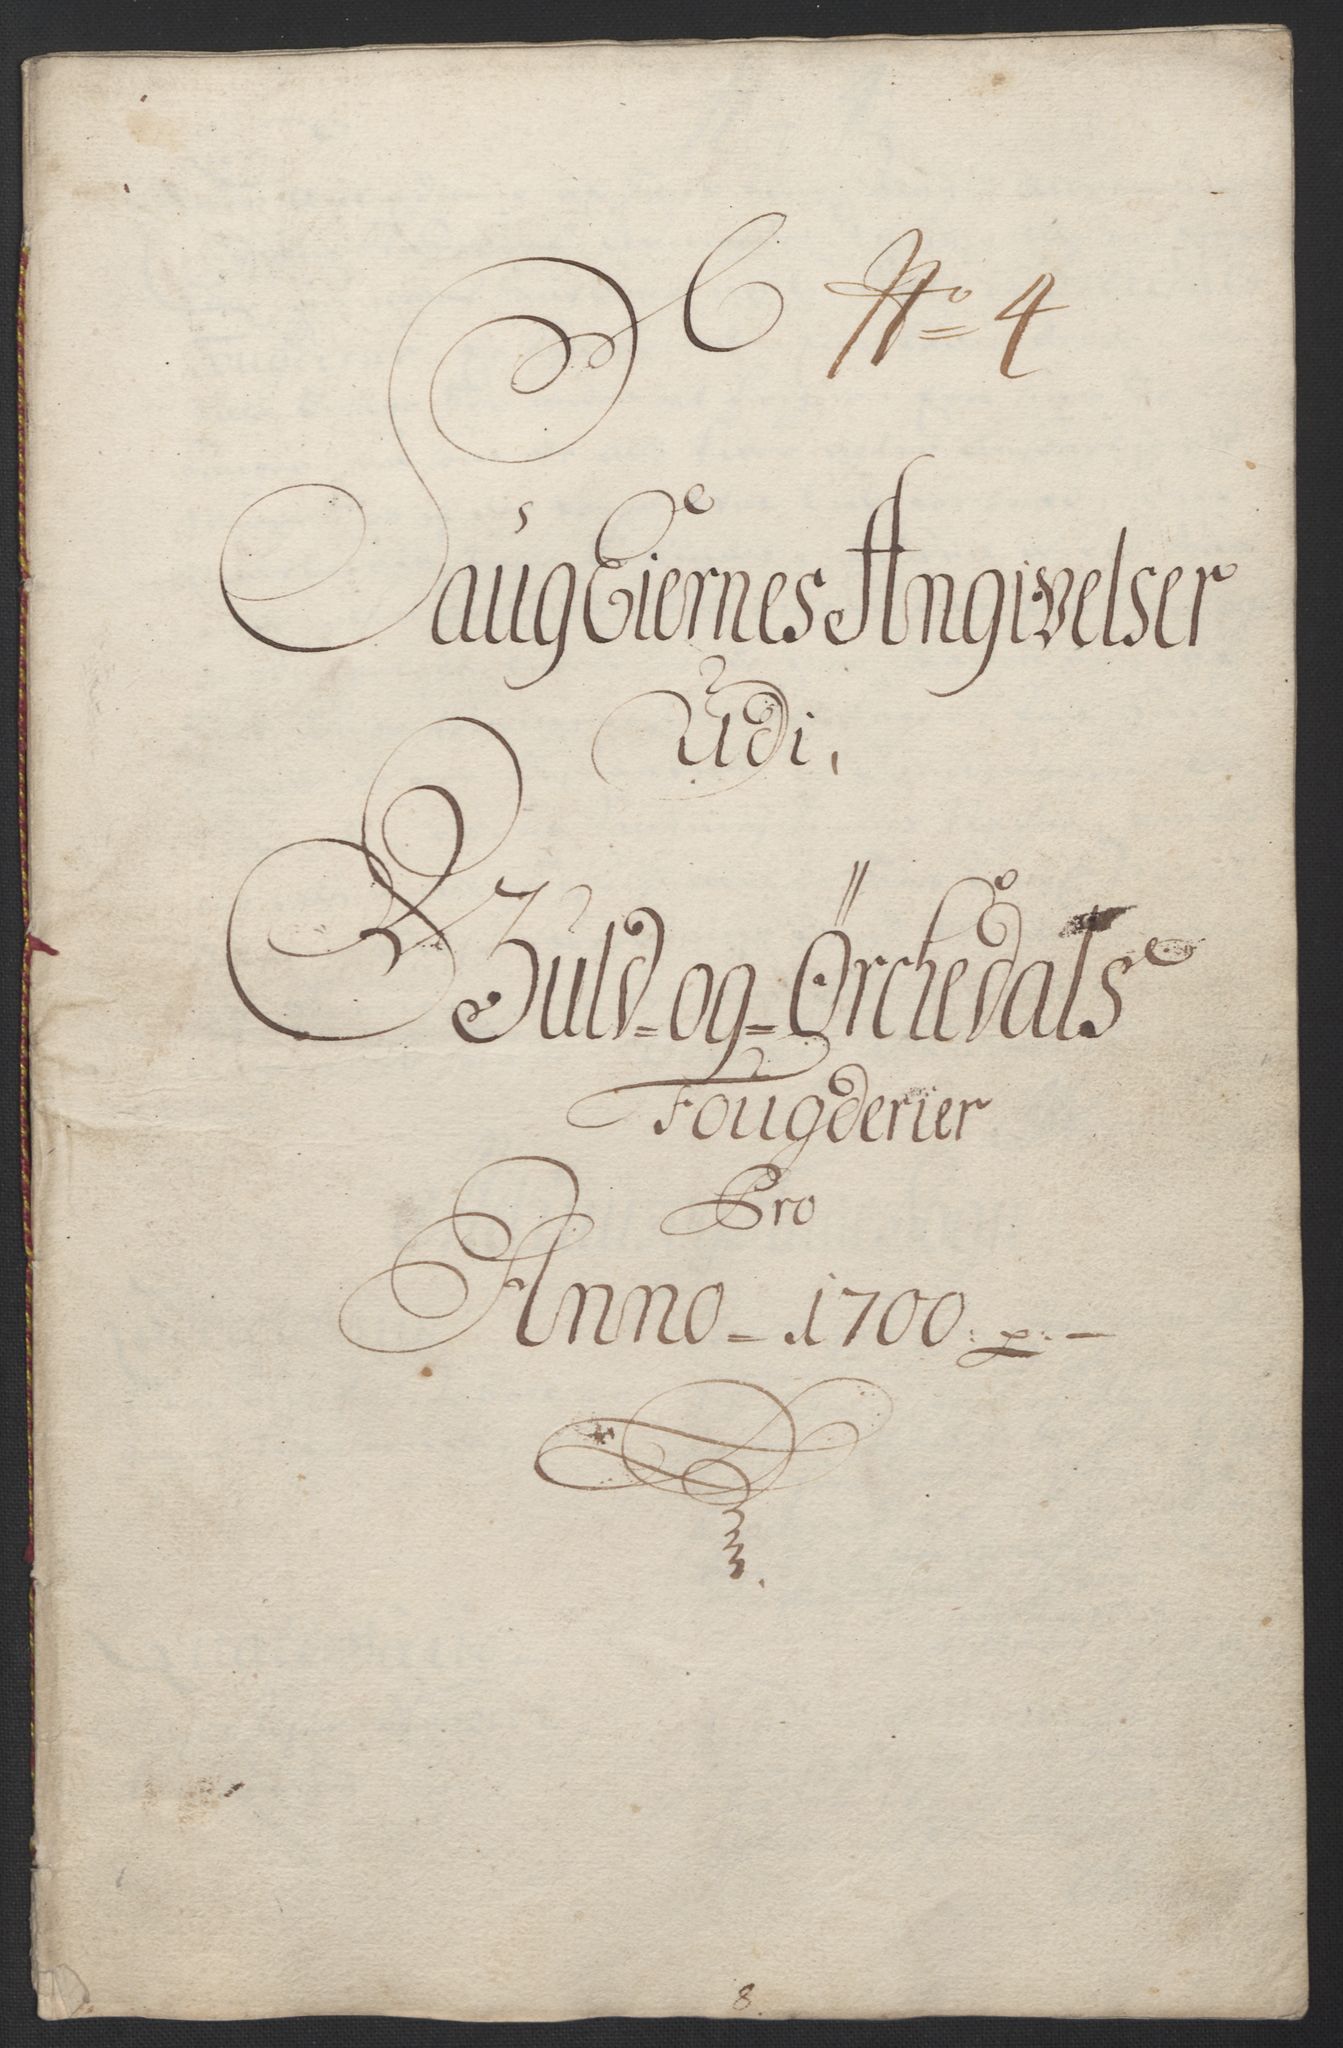 C No 4
SaugEiernes Angivelser
Udi,
Guld- og - Ørchedals
Fougderier
Pro
Anno - 1700
8